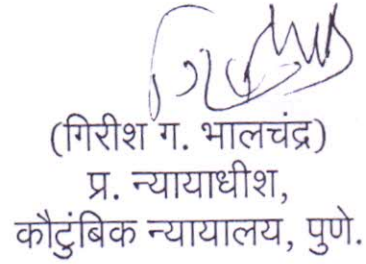 (गिरीश ग. भालचंद्र)
प्र. न्यायाधीश,
कौटुंबिक न्यायालय, पुणे.